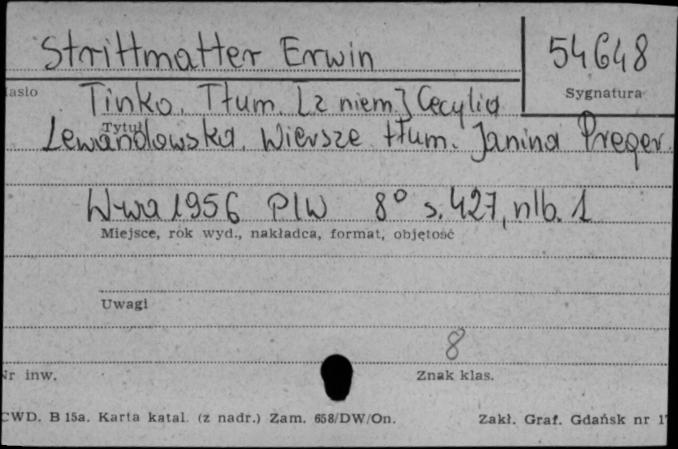 Strittmatter Erwin
54648
asło
Sygnatura
Tinko. Tłum. [z niem.] Cecylia
Tytuł
Lewandowska. Wiersze tłum. Janina Preger.
W-wa 1956 PIW 8° s. 427, nlb. 1
Miejsce, rok wyd., nakładca, format, objętość
Uwagi
8
Nr inw.
Znak klas.
CWD. B 15a. Karta katal. (z nadr.) Zam. 658/DW/On.
Zakł. Graf. Gdańsk nr 1